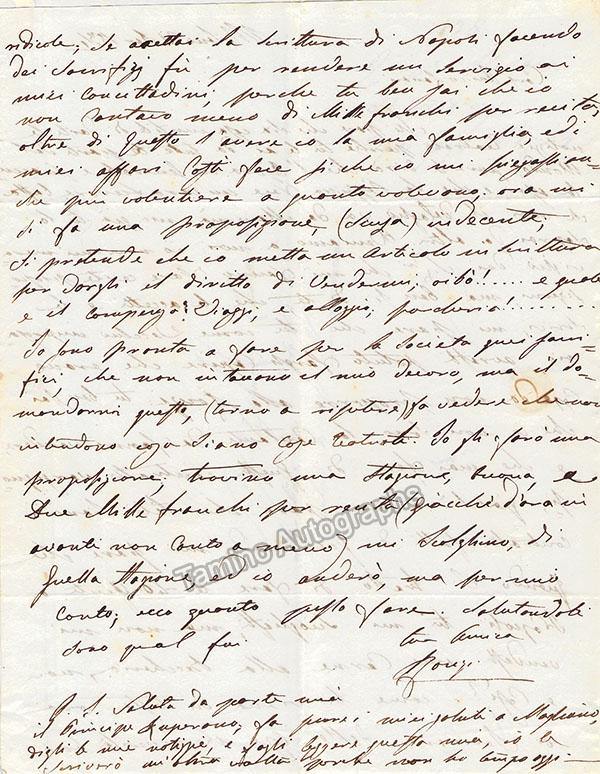 ridicole; Se accettai la scrittura di Napoli facendo
dei Sacrifizj fù per rendere un Servigio ai
miei Concittadini, perche tu ben sai che io
non Cantavo meno di Mille franchi per recita,
oltre di questo l'avere co la mia famiglia, ed i
miei affari Costì fece sì che io mi piegassi an-
che più volentiere a quanto volevano; ora mi
si fa una proposizione, (Scusa) indecente;
Si pretende che io metta un Articolo in Scrittura
per dargli il diretto di Vendermi; oibò!..... e quale
e il Compenso? Viaggi, e alloggio; porcheria!........
Io sono pronta a fare per la Società quei Sacri-
fizi, che non intaccano il mio decoro, ma il do-
mandarmi questo, (torno a ripetere) fa vedere che non
intendono cosa Siano Cose teatrali. Io gli farò una
proposizione; trovino una Stagione, buona, e
Due Mille franchi per recita (giacchè d'ora in
avanti non Canto a meno) mi Scolghino, di
quella Stagione ed io anderò, ma per mio
Conto; ecco quanto posso fare. Salutandoti
Sono qual fui
tua Amica
Ronzi
P. S. Saluta da parte mia
il Principe Ruperano, fa pure i miei saluti a Magliano,
digli le mie notizie, e fagli leggere questa mia, io le
Scriverò un'altra volta perche non ho tempo oggi.
Tamino Autographs